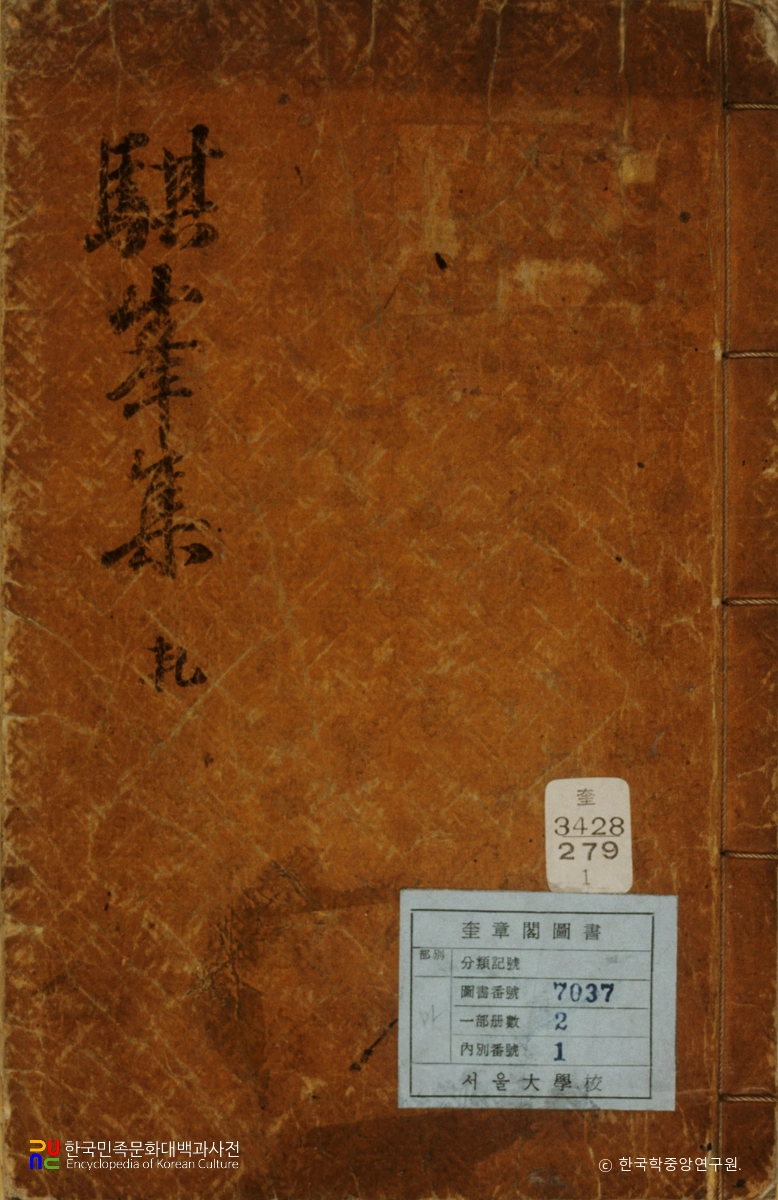 騏峯集
奎
3428
279
1
奎章閣圖書
部別
分類記號
圖書番號 7037
一部册數 2
內別番號 1
서울大學校
한국민족문화대백과사전
Encyclopedia of Korean Culture
ⓒ 한국학중앙연구원.